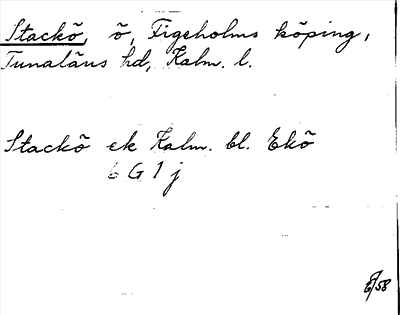 Stackö, ö, Figeholms köping,
Tunaläns hd, Kalm. l.
Stackö ek Kalm. bl. Ekö
6 G 1 j